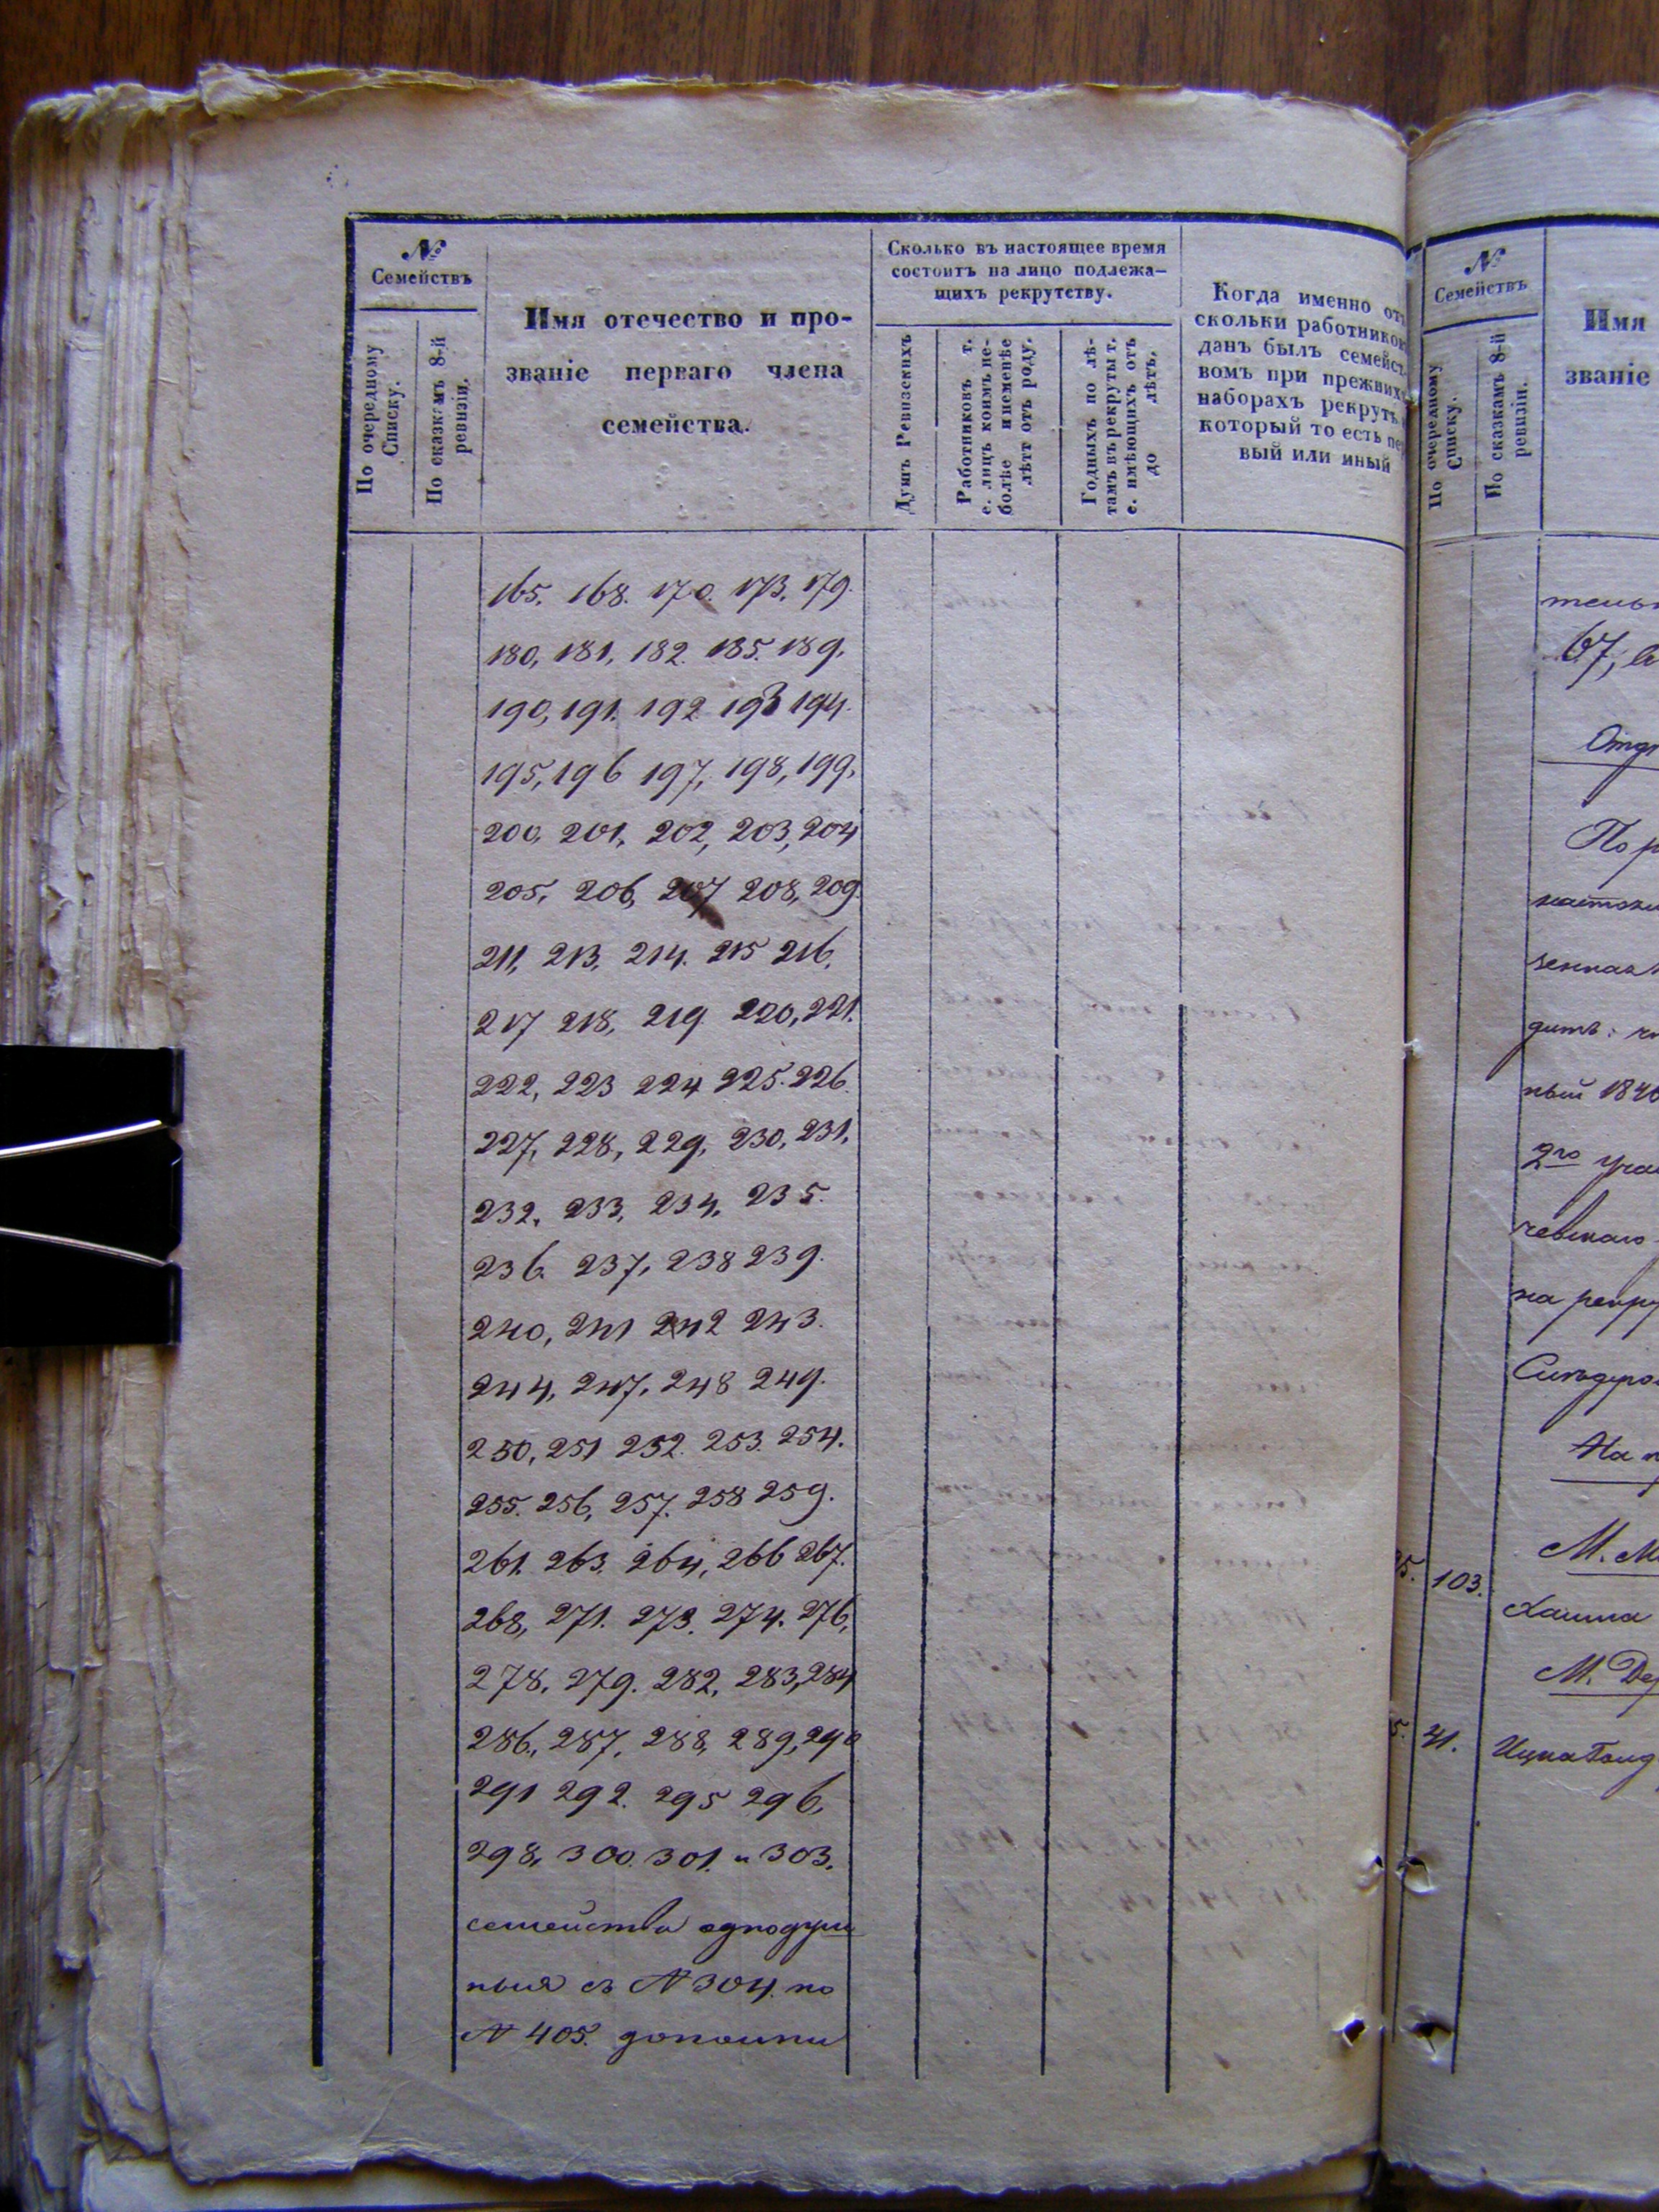 №
Семействъ
По очередному
Списку.
По сказкамъ 8-й
ревизіи.
Имя отечество и про-
званіе перваго члена
семейства.
Сколько въ настоящее время
состоитъ на лицо подлежа-
щихъ рекрутству.
Душъ Ревизскихъ
Работниковъ т.
е. лицъ коимъ не-
болѣе и неменѣе
лѣтт отъ роду.
Годныхъ по лѣ-
тамъ въ рекруты т.
е. имѣющихъ отъ
до лѣтъ.
Когда именно отъ
скольки работников
данъ былъ семейст-
вомъ при прежних
наборахъ рекрутъ
который то есть пер
вый или иный
165. 168. 170. 173. 179.
180, 181, 182. 185. 189.
190, 191. 192 193 194.
195, 196 197, 198, 199,
200, 201, 202, 203, 204
205, 206, 207 208, 209.
211, 213, 214. 215 216,
217 218, 219. 220, 221.
222, 223 224 225. 226.
227, 228, 229, 230, 231,
232, 233, 234, 235.
236. 237, 238 239.
240, 241 242 243.
244, 247, 248 249.
250, 251 252. 253. 254.
255. 256, 257. 258 259.
261. 263. 264, 266 267.
268, 271. 273. 274. 276,
278, 279. 282, 283, 284
286, 287, 288, 289, 290
291 292. 295 296,
298, 300. 301. и 303.
семейства однодуш
ныя съ № 304. по
№ 405. дополни
№
Семействъ
По очередному
Списку.
По сказкамъ 8-й
ревизіи.
Имя
званіе
тельн
67, в
По р
ный 1840
2го учас
на рекру
На
5. 103. М. М
Хаима
М. Де
5. 41. Ицка Голд